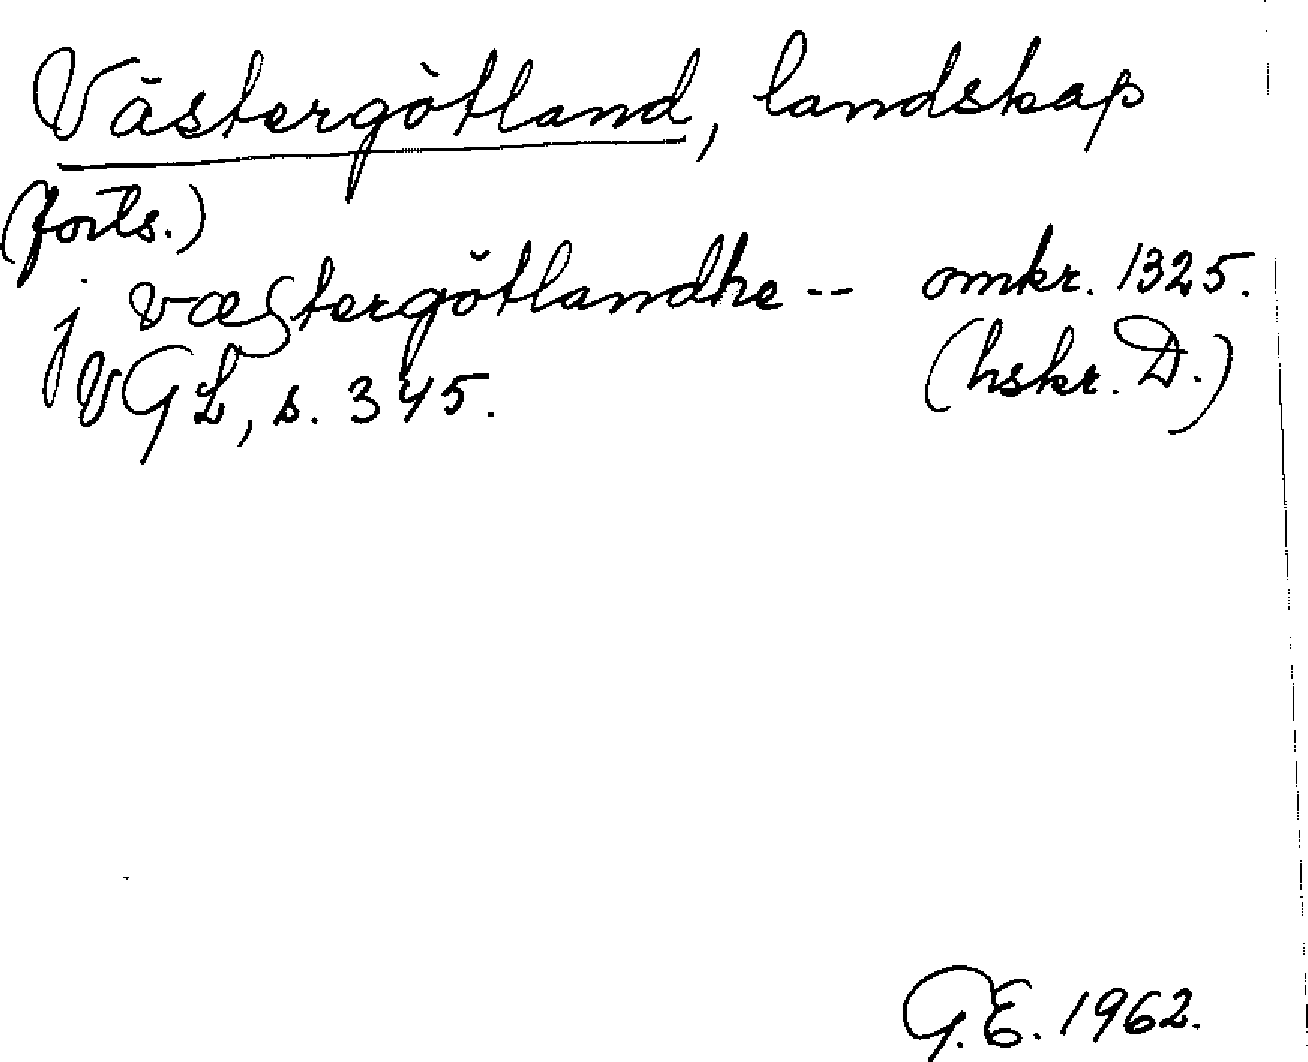 Västergötland, landskap
(forts.)
j væstergötlandhe -- omkr. 1325.
VGL, s. 345. (hskr. D.)
G.E. 1962.